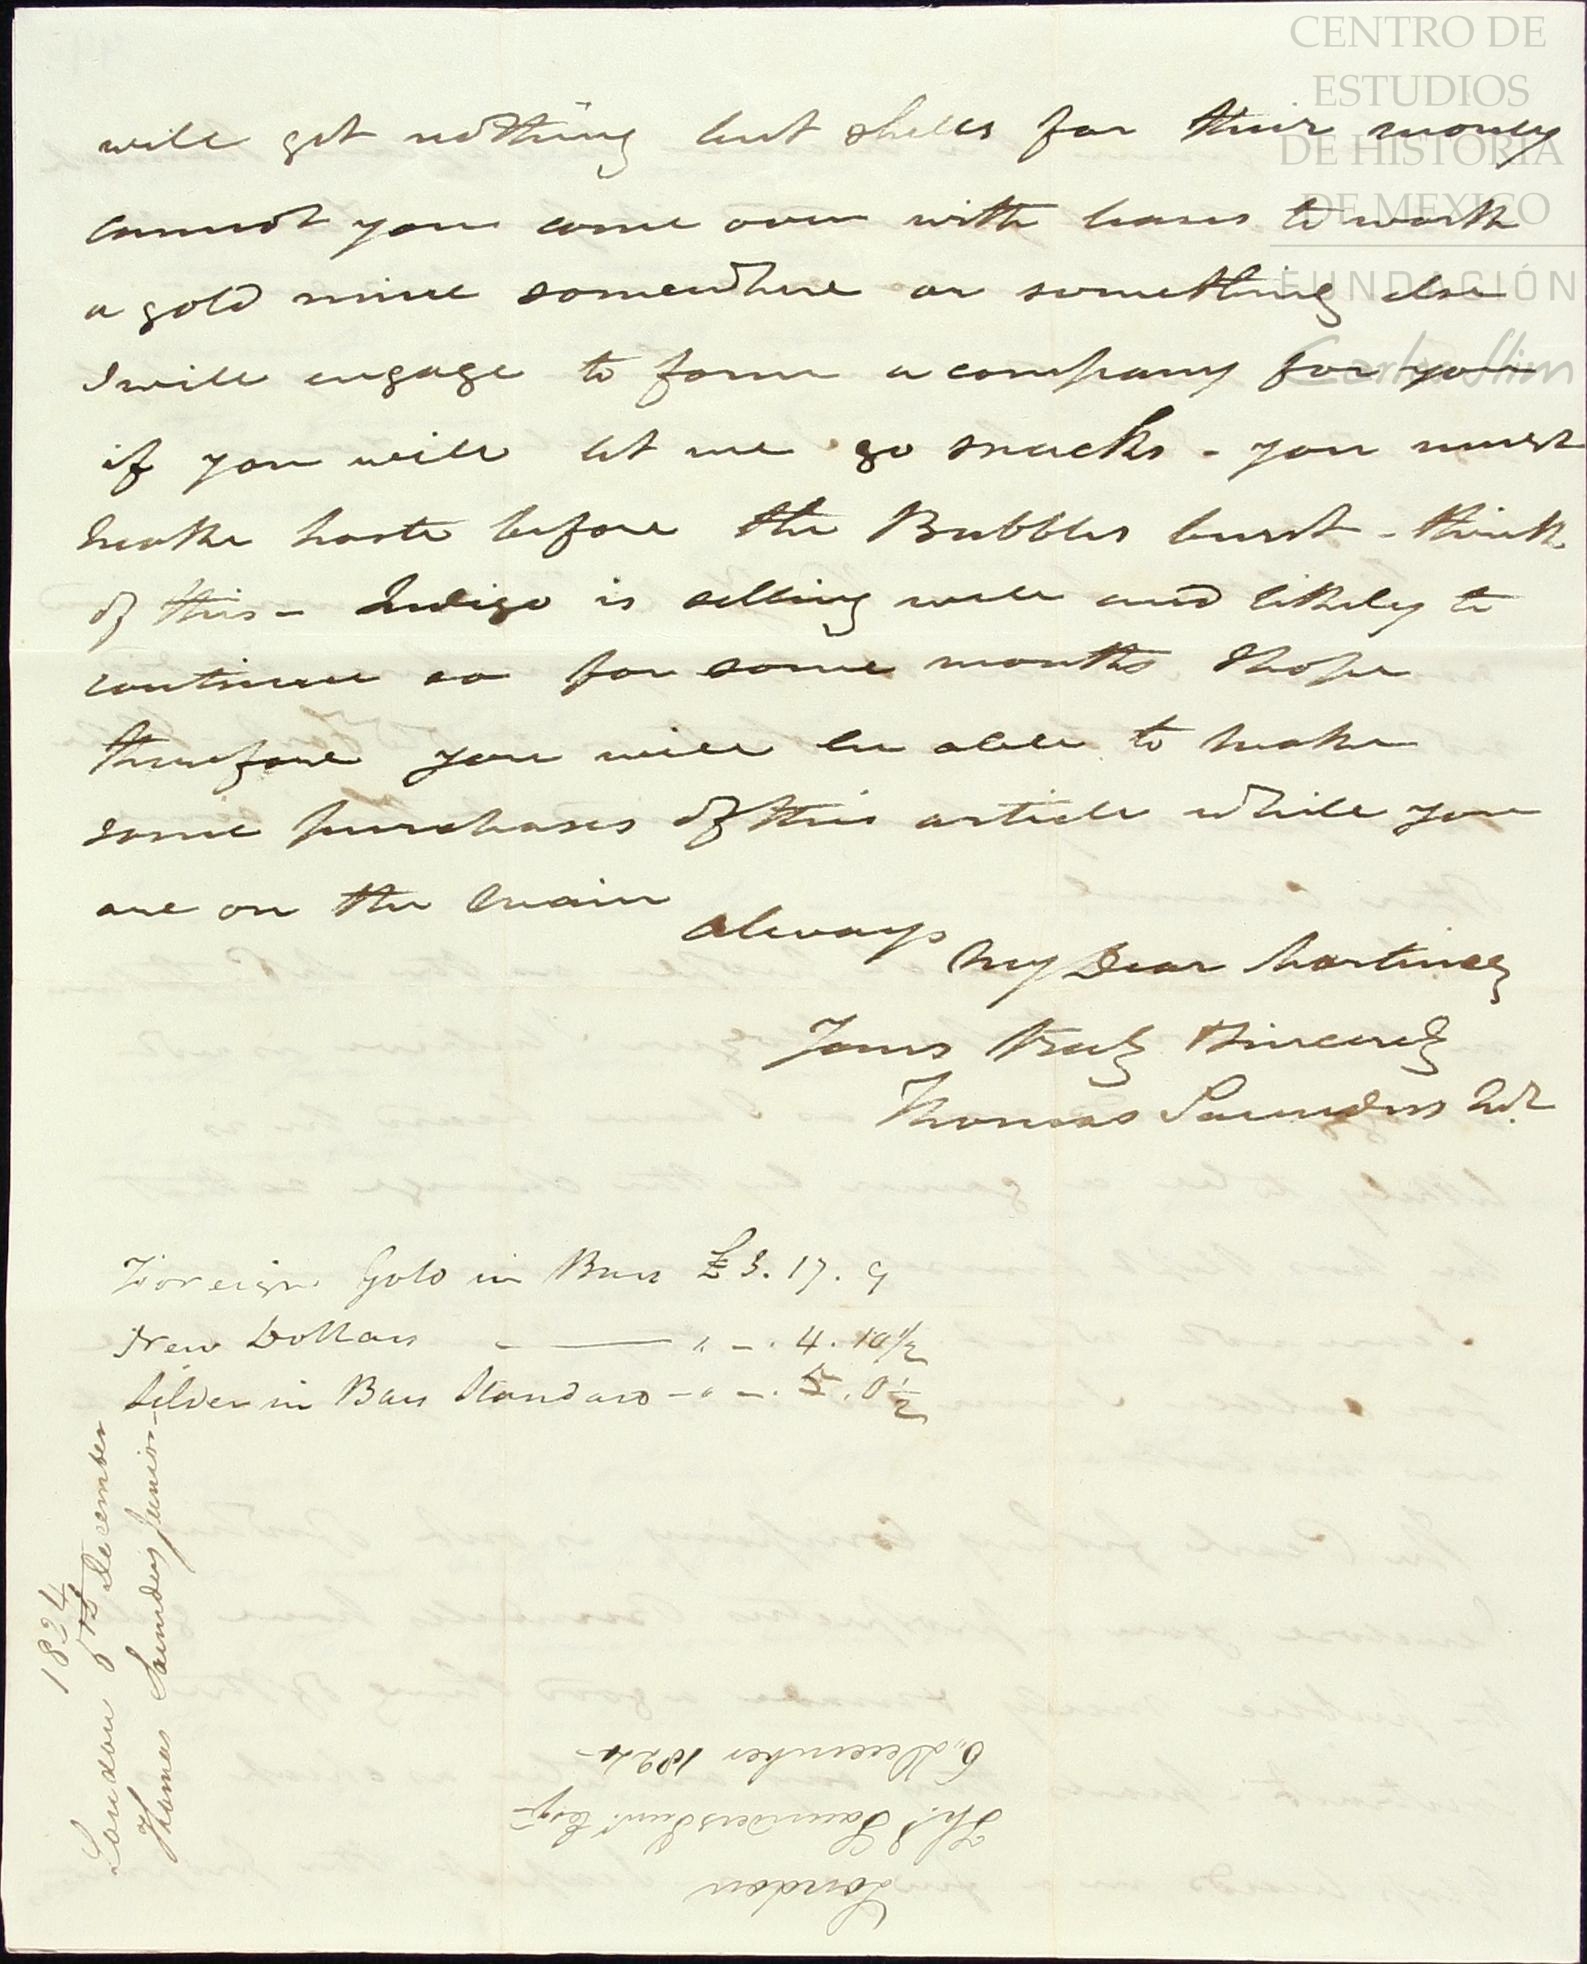 will get nothing but shells for their money
cannot you come over with leases to work
a gold mine somewhere or something else
I will engage to form a company for you
if you will let me go snacks - you must
make haste before the Bubbles burst - think
of this - Indigo is selling well and likely to
continue so for some months I hope
therefore you will be able to make
some purchases of this article while you
are on the main
always
My Dear Martinez
Yours Truly & Sincerely
Thomas Saunders Jr.
Foreign Gold in Bars £3. 17. 9
New Dollars — " - . 4. 10 1/2
Silver in Bars Standard - " - . 5. 0 1/2
1824
London 6th December
Thomas Saunders Junior
London
Ths. Saunders Junr. Esqr.
6,, December 1824
CENTRO DE
ESTUDIOS
DE HISTORIA
DE MEXICO
FUNDACIÓN
Carlos Slim